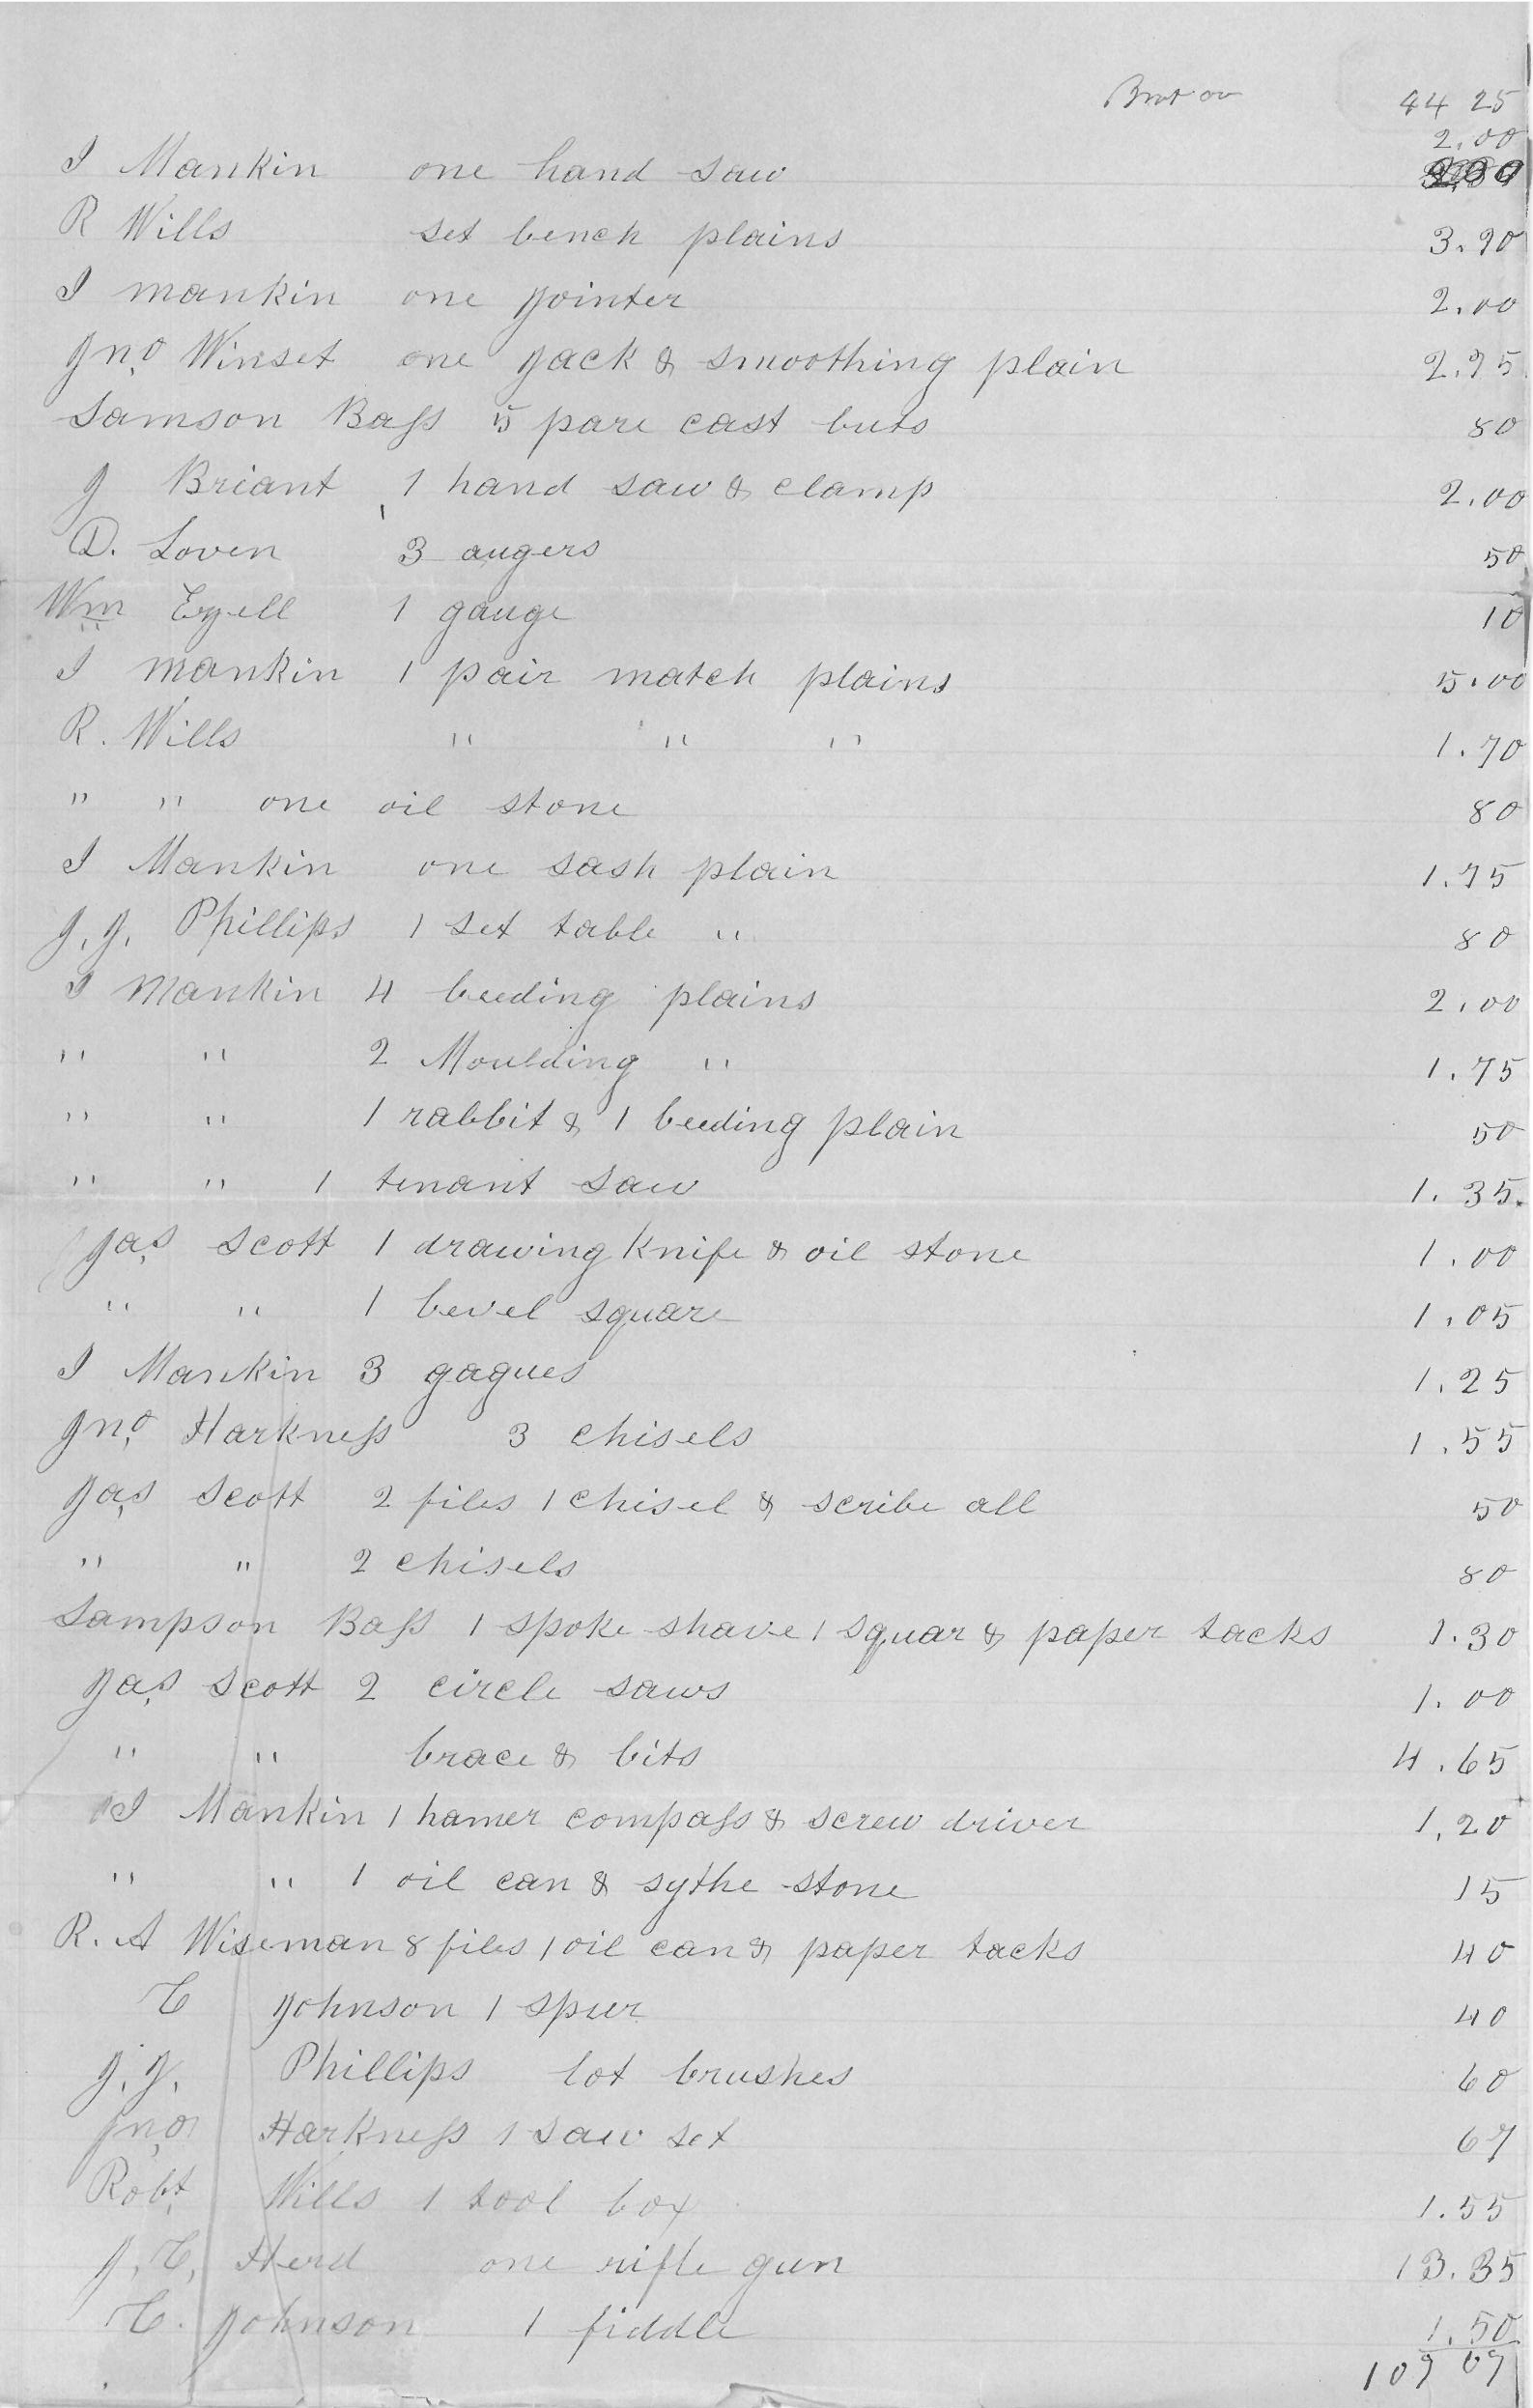 Brot ov 44 25
2.00
I Mankin one hand saw
R Wills set bench plains 3.90
I mankin one jointer 2.00
Jno Winset one Jack & smoothing plain 2.95
Samson Bass 5 pare cast buts 80
J Briant 1 hand saw & clamp 2.00
D. Loven 3 augers 50
Wm Ezell 1 gauge 10
I mankin 1 pair match plains 5.00
R. Wills " " " 1.70
" " one oil stone 80
I Mankin one sash plain 1.75
J. J. Phillips 1 set table " 80
I Mankin 4 beeding plains 2.00
" " 2 Moulding " 1.75
" " 1 rabbit & 1 beeding plain 50
" " 1 tenant saw 1.35.
Jas Scott 1 drawing knife & oil stone 1.00
" " 1 bevel square 1.05
I Mankin 3 gagues 1.25
Jno Harkness 3 chisels 1.55
Jas Scott 2 files 1 chisel & scribe all 50
" " 2 chisels 80
Sampson Bass 1 spoke shave 1 squar & paper tacks 1.30
Jas Scott 2 circle saws 1.00
" " brace & bits 4.65
I Mankin 1 hamer compass & screw driver 1.20
" " 1 oil can & sythe stone 15
R. A Wiseman 8 files 1 oil can & paper tacks 40
T Johnson 1 spur 40
J. J. Phillips lot brushes 60
Jno Harkness 1 saw set 67
Robt Wills 1 tool box 1.55
J. T. Herd one rifle gun 13.35
T. Johnson 1 fiddle 1.50
109 07